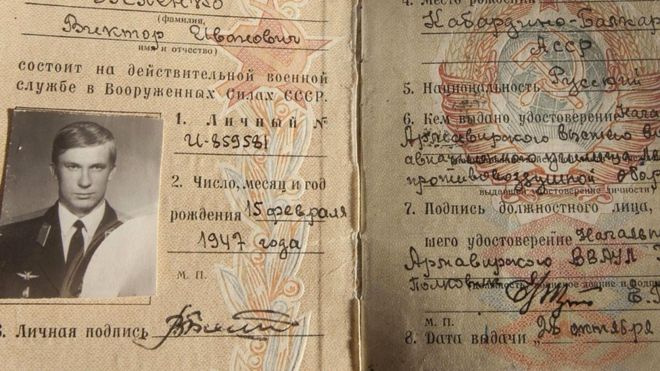 Виктор Иванович
имя и отчество)
(фамилия,
состоит на действительной военной
службе в Вооруженных Силах СССР.
1. Личный №
И-859581
2. Число, месяц и год
рождения 15 февраля
1947 года
М. П.
3. Личная подпись
4. Место рождения
Кабардино-Балкар
Асср
5. Национальность Русский
6. Кем выдано удостоверение Нача
Армавирского высшего
авиационного училища
противовоздушной обор
выдавшей удостоверение личности
7. Подпись должностного лица,
шего удостоверение Начальн
Армавирского ВВАУЛ
Полковник
М. П. 26 октября
8. Дата выдачи „